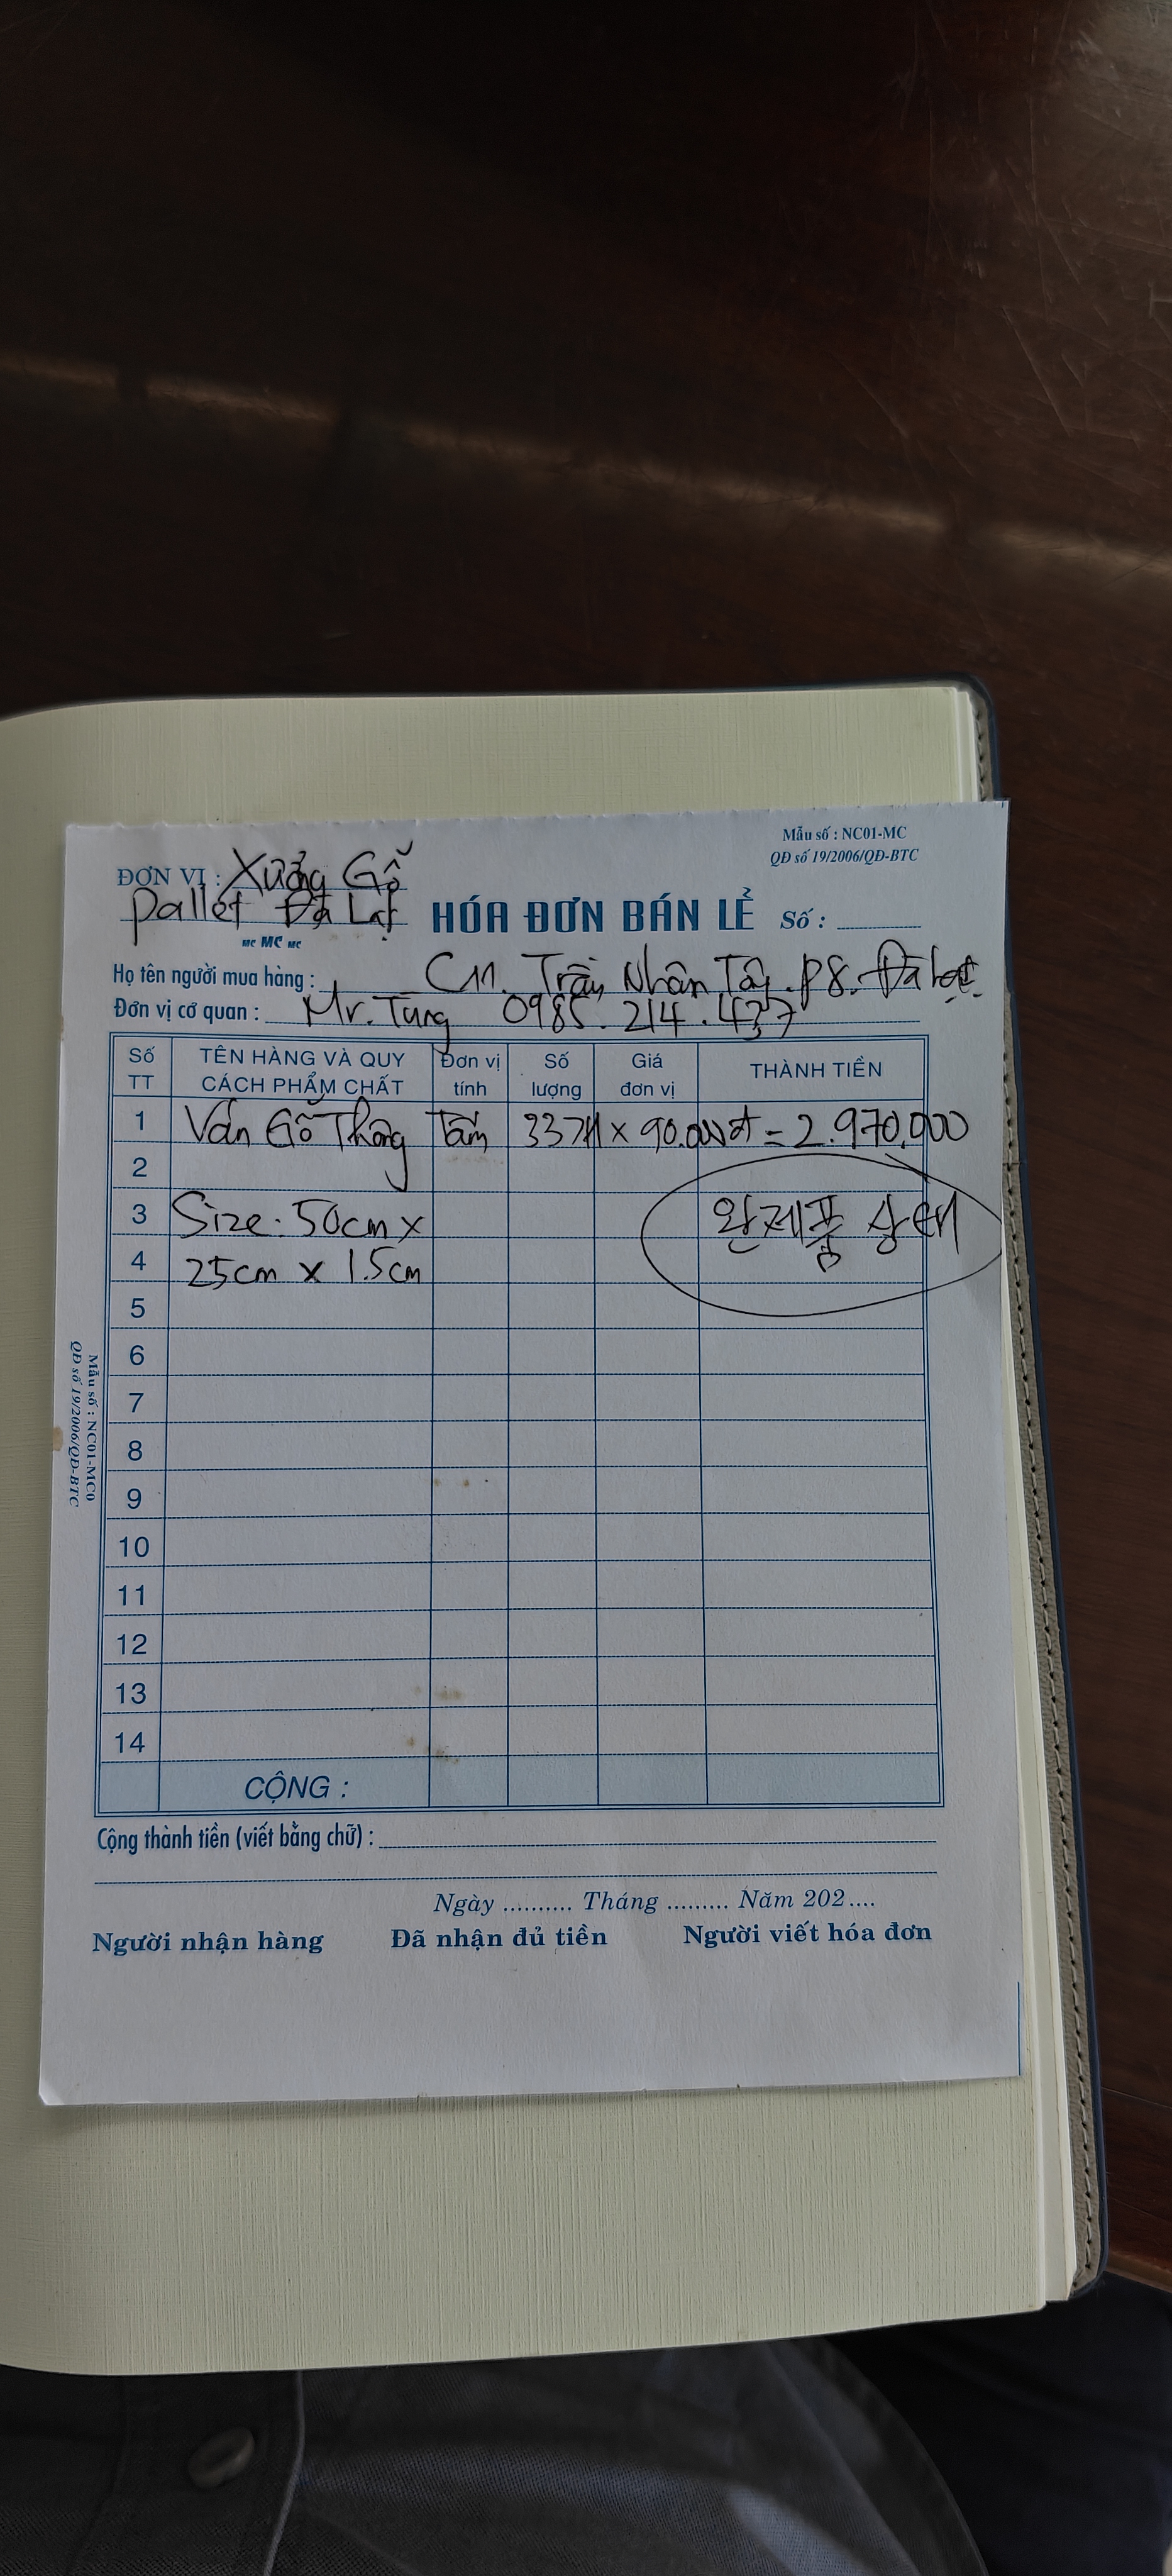 Mẫu số : NC01-MC
QĐ số 19/2006/QĐ-BTC
ĐƠN VỊ : Xưởng Gỗ
pallet Đà Lạt
MC MC MC
HÓA ĐƠN BÁN LẺ Số :
Họ tên người mua hàng : C11. Trần Nhân Tông. P8. Đà Lạt.
Đơn vị cơ quan : Mr. Tung 0985.214.437
Số TT TÊN HÀNG VÀ QUY CÁCH PHẨM CHẤT Đơn vị tính Số lượng Giá đơn vị THÀNH TIỀN
1 Ván Gỗ Thông Tấm 33개 x 90.000đ = 2.970.000
2
3 Size: 50cm x 완제품 상태
4 25cm x 1.5cm
5
6
7
8
9
10
11
12
13
14
CỘNG :
Cộng thành tiền (viết bằng chữ) :
Ngày .......... Tháng ......... Năm 202....
Người nhận hàng Đã nhận đủ tiền Người viết hóa đơn
Mẫu số : NC01-MC0
QĐ số 19/2006/QĐ-BTC